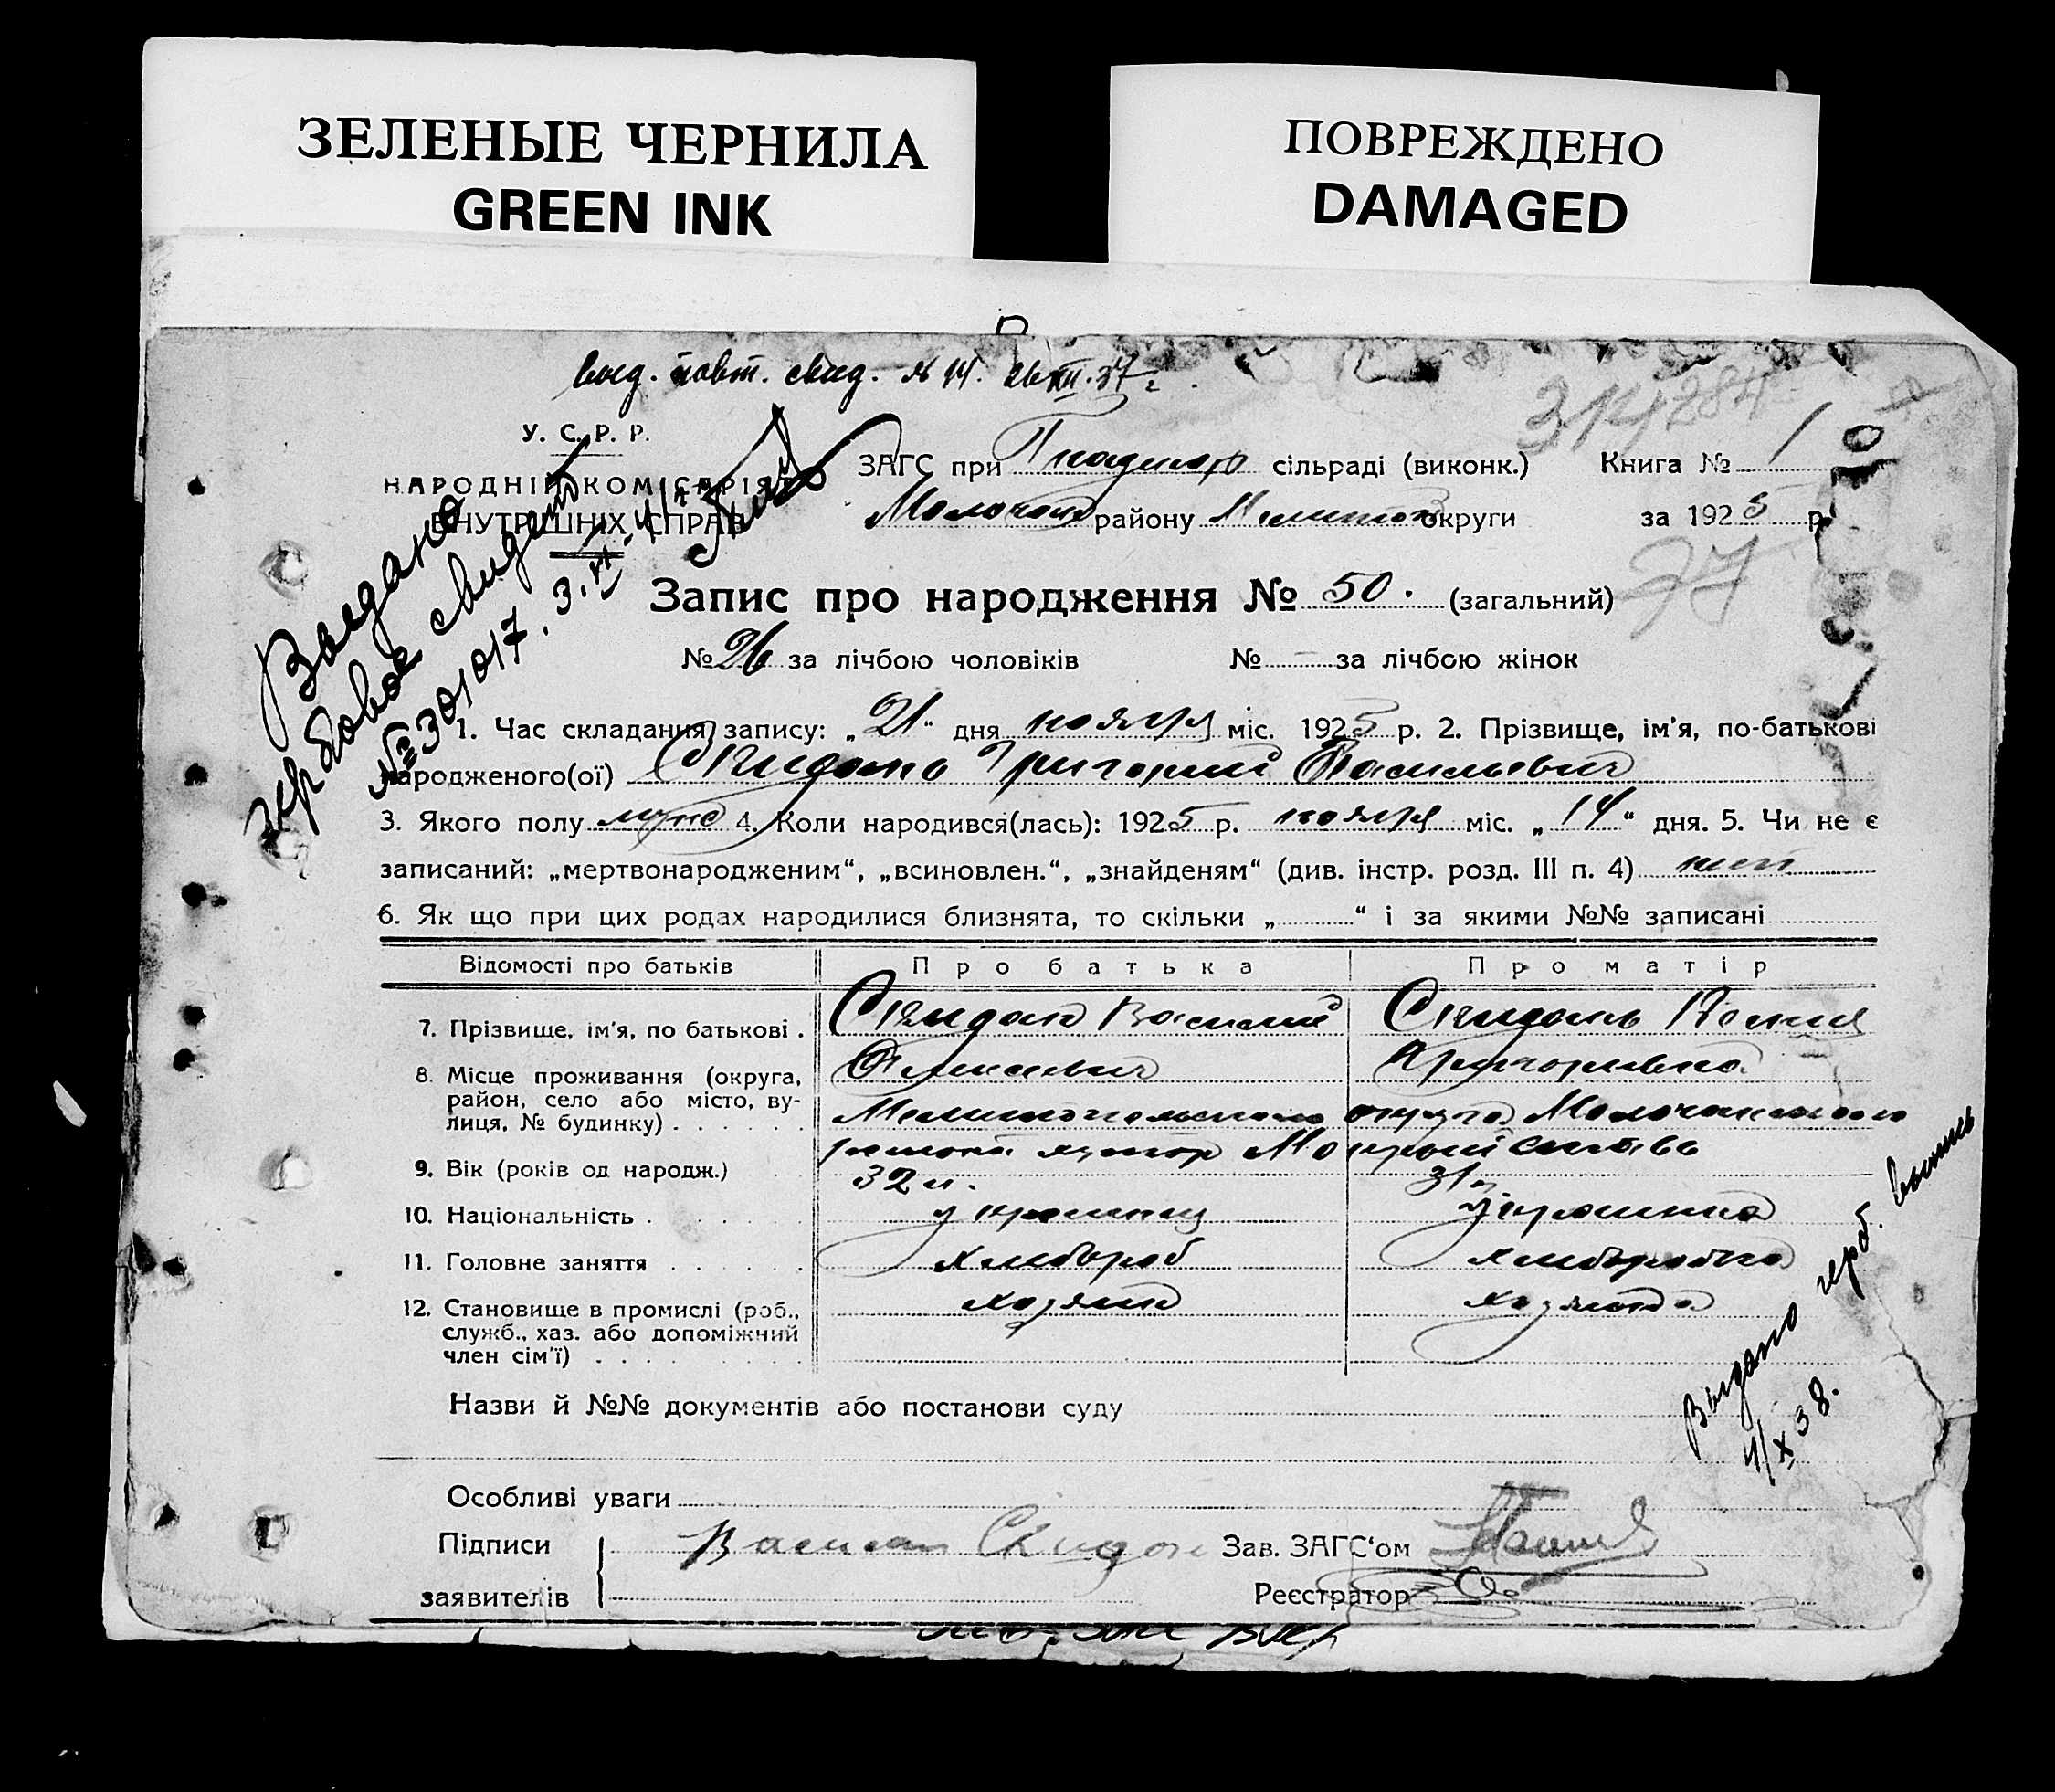 ЗЕЛЕНЫЕ ЧЕРНИЛА
GREEN INK
ПОВРЕЖДЕНО
DAMAGED
выд. повт. свид. № 14. 26 XII. 37 г.
У. С. Р. Р.
НАРОДНІЙ КОМІСАРІЯТ
ВНУТРІШНІХ СПРАВ
Выдано
гербовое свидет
№ 301017. 3. VI
314284
ЗАГС при сільраді (виконк.) Книга № 1
Молочан району Мелитоп округи за 1925 р.
27
Запис про народження № 50. (загальний)
№ 26 за лічбою чоловіків № — за лічбою жінок
1. Час складання запису: „21“ дня ноября міс. 1925 р. 2. Прізвище, ім'я, по-батькові
народженого(ої) Скидань Григорий Васильевич
3. Якого полу муж 4. Коли народився(лась): 1925 р. ноября міс. „14“ дня. 5. Чи не є
записаний: „мертвонародженим“, „всиновлен.“, „знайденям“ (див. інстр. розд. III п. 4) нит
6. Як що при цих родах народилися близнята, то скільки „ “ і за якими №№ записані
Відомості про батьків Про батька Про матір
7. Прізвище, ім'я, по батькові . Скидан Василий Скидань
Алексеевич Григорьевна
8. Місце проживання (округа, район, село або місто, вулиця, № будинку) . . . . . . Мелитопольского округа Молочанского
района хутор Мокрый
9. Вік (років од народж.) 32 л. 31
10. Національність . украинец украинка
11. Головне заняття . . . . . . хлебороб хлеборобка
12. Становище в промислі (роб., служб., хаз. або допоміжний член сім'ї) . . . . хозяин хозяйка
Выдано герб. выпись
4/X 38.
Назви й №№ документів або постанови суду
Особливі уваги
Підписи Василь Скидан Зав. ЗАГС'ом
заявителів Реєстратор